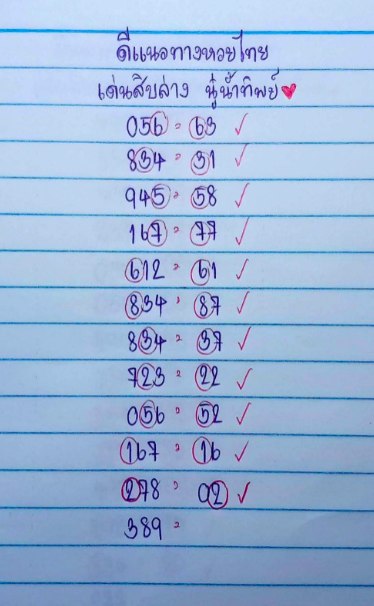 ดีแนอทางหวยไทย
เด่นสิบล่าง นู๋น้ำทิพย์
056 = 63 ✓
834 = 31 ✓
945 = 58 ✓
167 = 77 ✓
612 = 61 ✓
834 = 87 ✓
834 = 37 ✓
723 = 22 ✓
056 = 52 ✓
167 = 16 ✓
278 = 02 ✓
389 =